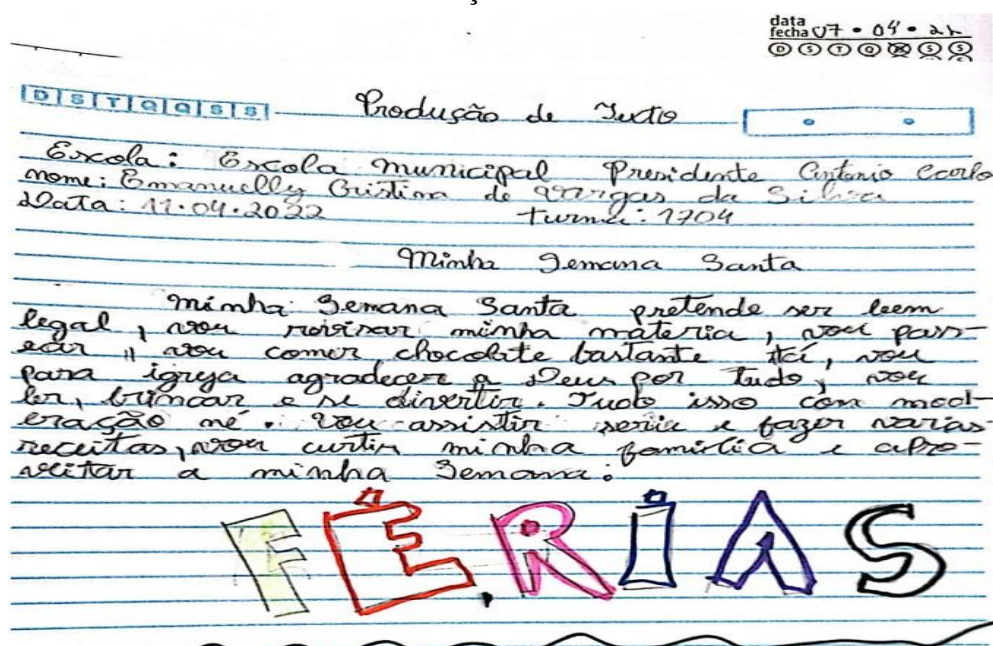 data
fecha 07 • 04 • 22
D S T Q Q S S
D S T Q Q S S
Produção de Texto
Escola: Escola municipal Presidente Antonio Carlo
nome: Emanuelly Cristina de Vargas da Silva
Data: 11.04.2022 turma: 1704
Minha Semana Santa
minha Semana Santa pretende ser bem
legal, vou revisar minha materia, vou pass-
ear, vou comer chocolate bastante tá, vou
para igreja agradecer a Deus por tudo, vou
ler, brincar e se divertir. Tudo isso com mod-
eração né. vou assistir serie e fazer varias
receitas, vou curtir minha família e apro-
veitar a minha Semana.
FÉRIAS